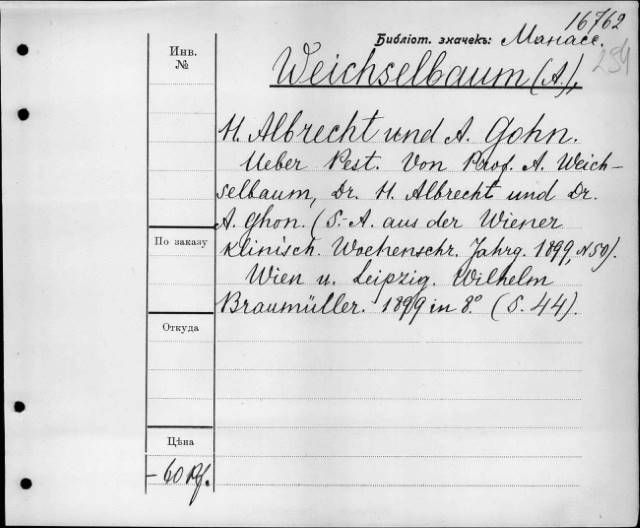 16762
Библіот. значекъ: Манасе.
254
Инв.
№
Weichselbaum (A.),
H. Albrecht und A. Gohn.
Ueber Pest. Von Prof. A. Weich-
selbaum, Dr. H. Albrecht und Dr.
A. Ghon. (S.-A. aus der Wiener
По заказу
klinisch. Wochenschr. Jahrg. 1899, N 50).
Wien u. Leipzig. Wilhelm
Braumüller. 1899 in 8.° (S. 44).
Откуда
Цѣна
- 60 Pf.